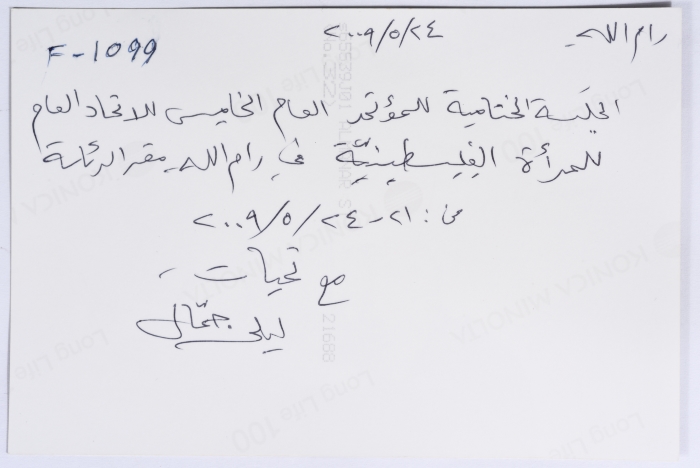 رام الله ٢٠٠٩/٥/٢٤
F-1099
الجلسة الختامية للمؤتمر العام الخامس للاتحاد العام
للمرأة الفلسطينية في رام الله - مقر الرئاسة
من: ٢١-٢٤/٥/٢٠٠٩
مع تحيات
ليلى جمّال